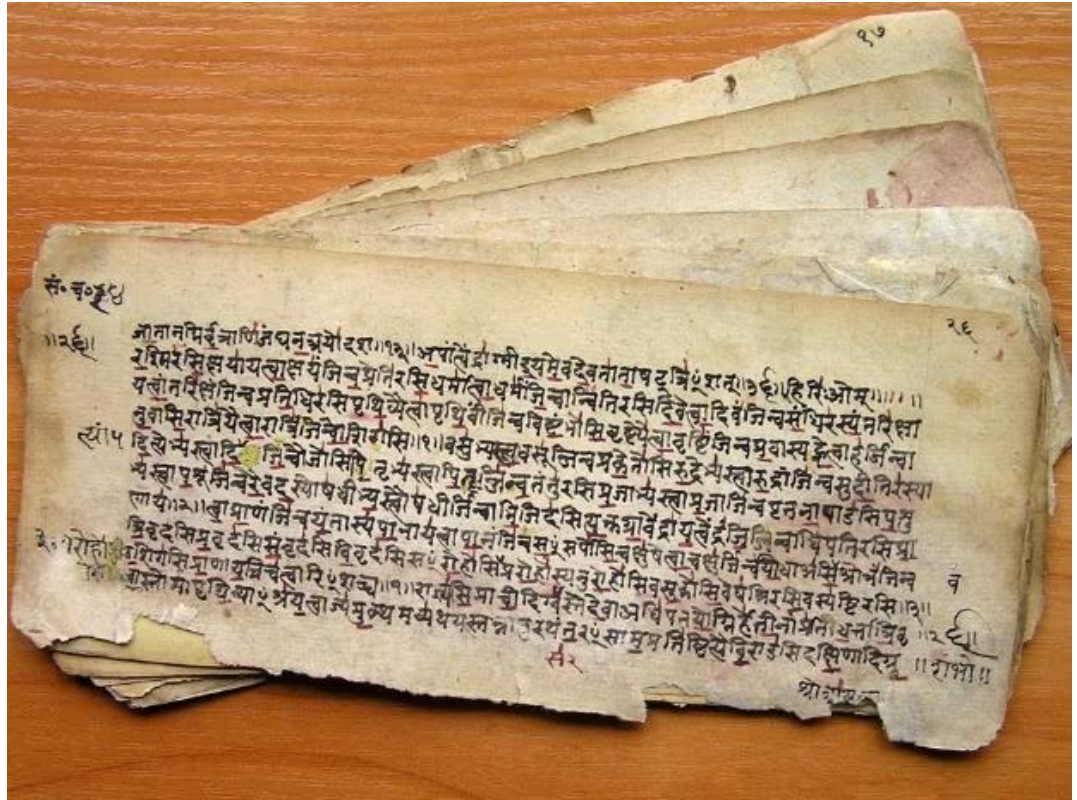 सं॰ च॰ ३४ २६
जातानग्निर्वृत्राणिजंघनच्चयोदश॥१३॥अपांत्वेंद्राग्नीइयमेवदेवतानाषट्त्रिꣳशत्॥३६॥हरिःओम्॥
॥२६॥ रश्मिरसिक्षयायत्वाक्षयंजिन्वप्रेतिरसिधर्मायत्वाधर्मंजिन्वान्वितिरसिदिवेत्वादिवंजिन्वसंधिरस्यंतरिक्षा
यत्वांतरिक्षंजिन्वप्रतिधिरसिपृथिव्यैत्वापृथिवींजिन्वविष्टंभोसिवृष्ट्यैत्वावृष्टिंजिन्वप्रवास्यह्नेत्वाहर्जिन्वा
नुवासिरात्रियैत्वारात्रिंजिन्वोशिगसि॥१॥वसुभ्यस्त्वावसूञ्जिन्वप्रकेतोसिरुद्रेभ्यस्त्वारुद्राञ्जिन्वसुदीतिरस्या
दित्येभ्यस्त्वादि जिन्वौजोसिपितृभ्यस्त्वापितॄञ्जिन्वतंतुरसिप्रजाभ्यस्त्वाप्रजाजिन्वपृतनाषाडसिपशु
भ्यस्त्वापशूञ्जिन्वरेवदस्योषधीभ्यस्त्वौषधीर्जिन्वाभिजिदसियुक्तग्रावेंद्रायत्वेंद्रंजिन्वाधिपतिरसिप्रा
णाय॥२॥त्वाप्राणंजिन्वयंतास्यपानायत्वापानंजिन्वसꣳसर्पोसिचक्षुषेत्वाचक्षुर्जिन्ववयोधाअसिश्रोत्रंजिन्व व
त्रिवृदसिप्रवृदसिसंवृदसिविवृदसिसꣳरोहोसिप्ररोहोस्यनुरोहोसिवसुकोसिवेषश्रिरसिवस्यष्टिरसि॥३॥
शिगसिप्राणायत्रिचत्वारिꣳशच्च॥१॥राज्ञ्यसिप्राचीदिग्वसवस्तेदेवाअधिपतयोग्निर्हेतीनांप्रतिधर्तात्रिवृ ॥२६॥
त्वास्तोमःपृथिव्याꣳश्रयत्वाज्यमुक्थमव्यथयत्स्तभ्नातुरथंतरꣳसामप्रतिष्ठित्यैविराडसिदक्षिणादिग्रु ॥शंभो॥